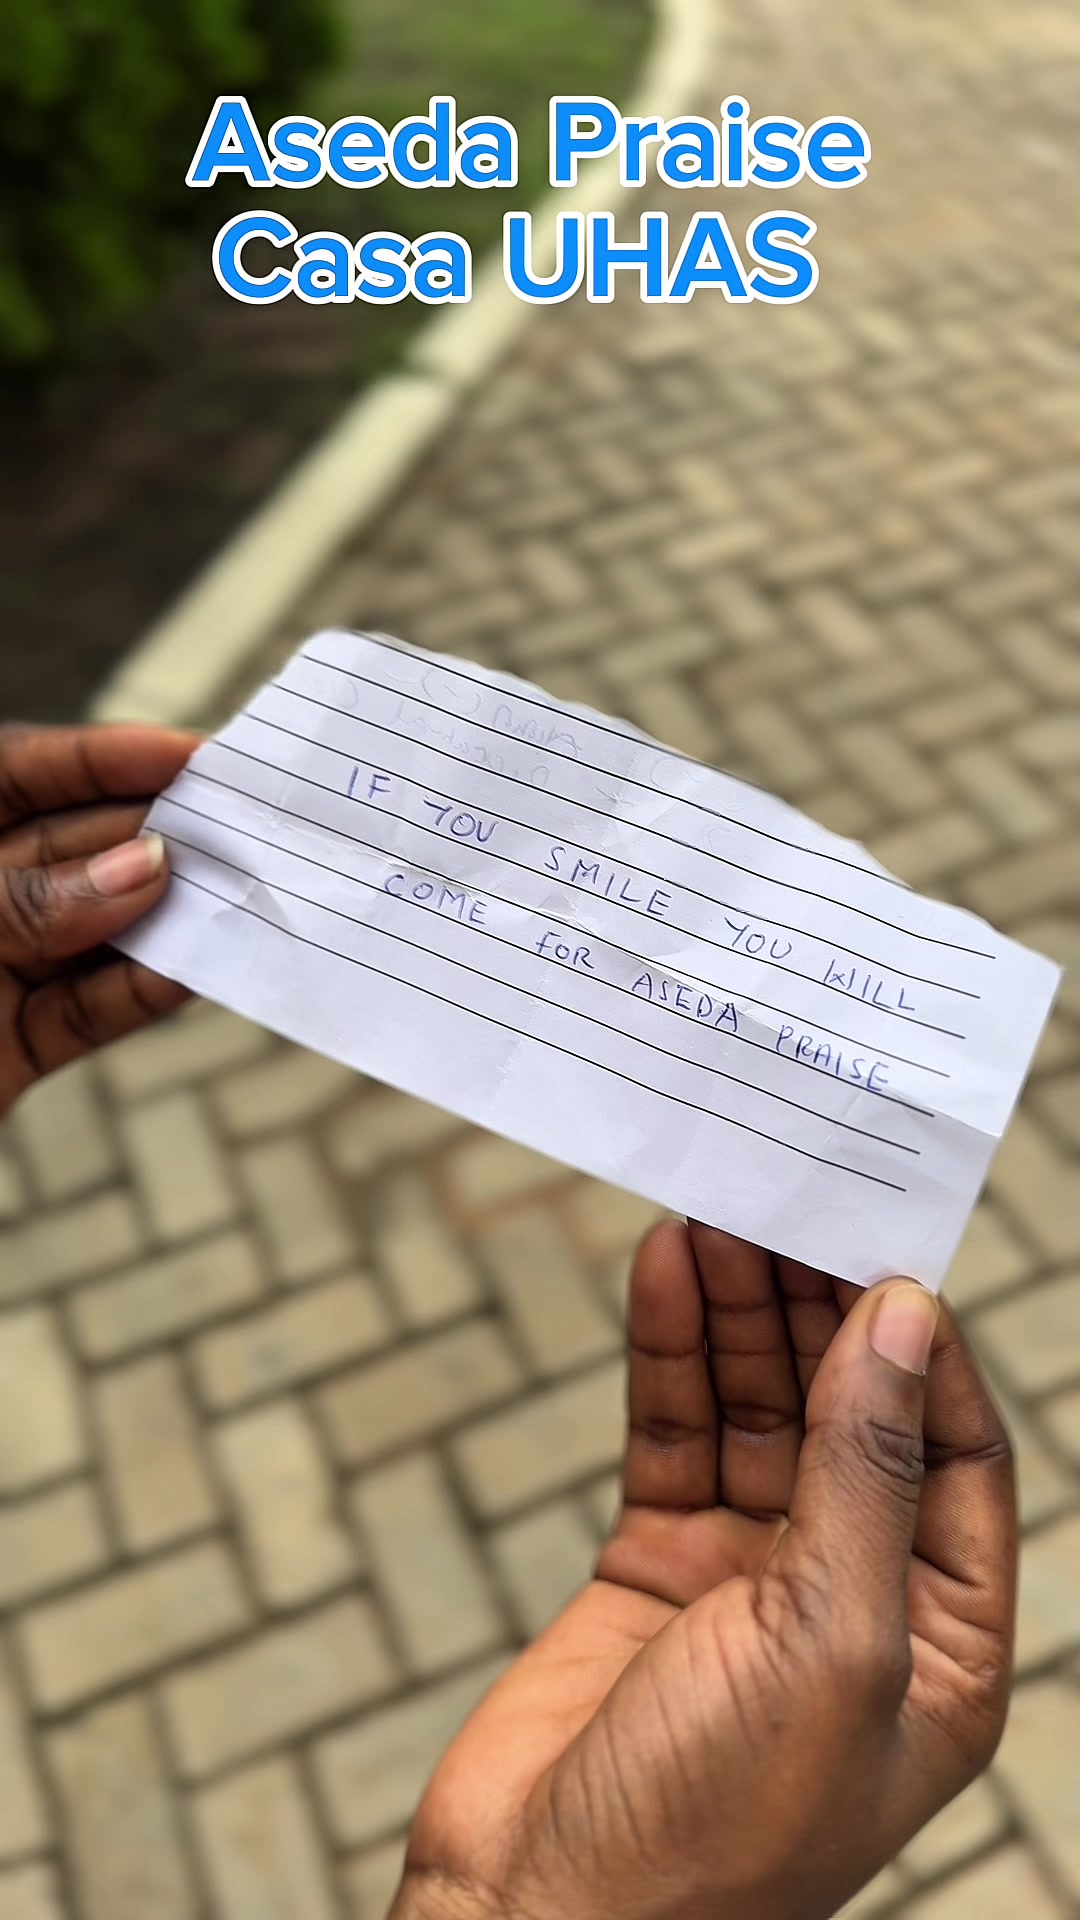 Aseda Praise
Casa UHAS
IF YOU SMILE YOU WILL
COME FOR ASEDA PRAISE